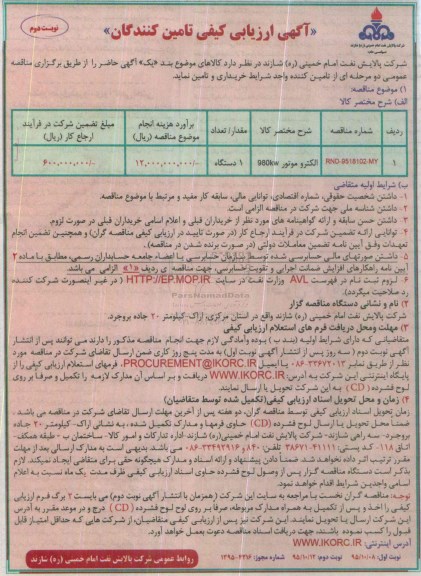 «آگهی ارزیابی کیفی تامین کنندگان»
نوبت دوم
شرکت پالایش نفت امام خمینی (ره) شازند در نظر دارد کالاهای موضوع بند «یک» آگهی حاضر را از طریق برگزاری مناقصه
عمومی دو مرحله ای از تامین کننده واجد شرایط خریداری و تامین نماید.
۱) موضوع مناقصه:
الف) شرح مختصر کالا
ردیف شماره مناقصه شرح مختصر کالا مقدار/ تعداد برآورد هزینه انجام موضوع مناقصه (ریال) مبلغ تضمین شرکت در فرآیند ارجاع کار (ریال)
۱ RND-9518102-MY الکترو موتور 980kw ۱ دستگاه ۱۲,۰۰۰,۰۰۰,۰۰۰/- ۶۰۰,۰۰۰,۰۰۰/-
ب) شرایط اولیه متقاضی
۱- داشتن شخصیت حقوقی، شماره اقتصادی، توانایی مالی، سابقه کار مفید و مرتبط با موضوع مناقصه.
۲- داشتن شناسه ملی جهت شرکت در مناقصه الزامی است.
۳- داشتن حسن سابقه و ارائه گواهینامه های مورد نظر از خریداران قبلی و اعلام اسامی خریداران قبلی در صورت لزوم.
۴- توانایی ارائه تضمین شرکت در فرآیند ارجاع کار (در صورت تایید در ارزیابی کیفی مناقصه گران) و همچنین تضمین انجام
تعهدات وفق آیین نامه تضمین معاملات دولتی (در صورت برنده شدن در مناقصه).
۵- داشتن صورتهای مالی حسابرسی شده توسط سازمان حسابرسی یا اعضاء جامعه حسابداران رسمی، مطابق با ماده ۲
آیین نامه راهکارهای افزایش ضمانت اجرایی و تقویت حسابرسی، جهت مناقصه ی ردیف «۱» الزامی می باشد.
۶- لزوم ثبت نام در فهرست AVL وزارت نفت در سایت HTTP://EP.MOP.IR (در غیر اینصورت شرکت کننده
رد صلاحیت میگردد).
۲) نام و نشانی دستگاه مناقصه گزار
شرکت پالایش نفت امام خمینی (ره) شازند واقع در استان مرکزی، اراک، کیلومتر ۲۰ جاده بروجرد.
۳) مهلت ومحل دریافت فرم های استعلام ارزیابی کیفی
متقاضیانی که دارای شرایط اولیه (بند ب) بوده وآمادگی لازم جهت انجام مناقصه مذکور را دارند می توانند پس از انتشار
آگهی نوبت دوم (سه روز پس از انتشار آگهی نوبت اول) به مدت پنج روز کاری ضمن ارسال تقاضای شرکت در مناقصه مورد
نظر از طریق نمابر ۳۳۶۷۲۰۱۳-۰۸۶ ویا ایمیل PROCUREMENT@IKORC.IR، فرمهای استعلام ارزیابی کیفی را از
پایگاه اینترنتی این شرکت به آدرس: WWW.IKORC.IR دریافت و بر اساس آن مدارک لازمه را تکمیل و صرفاً بر روی
لوح فشرده (CD) به این شرکت تحویل یا ارسال نمایند.
۴) زمان و محل تحویل اسناد ارزیابی کیفی(تکمیل شده توسط متقاضیان)
زمان تحویل اسناد ارزیابی کیفی توسط مناقصه گران، دو هفته پس از آخرین مهلت ارسال تقاضای شرکت در مناقصه می باشد.
ضمناً محل تحویل یا ارسال لوح فشرده (CD) حاوی فرمها و مدارک تکمیل شده، به نشانی اراک- کیلومتر ۲۰ جاده
بروجرد- سه راهی شازند- شرکت پالایش نفت امام خمینی(ره) شازند- اداره تدارکات و امور کالا- ساختمان ب - طبقه همکف-
اتاق ۱۱۸- کد پستی: تلفن: می باشد. بدیهی است به مدارک ارسالی بعد از مهلت
مقرر ترتیب اثر داده نخواهد شد. ضمناً دادن پیشنهاد و ارائه اسناد و مدارک هیچگونه حقی برای متقاضی ایجاد نمیکند. لازم
بذکر است دستگاه مناقصه گزار پس از وصول لوح فشرده حاوی اسناد ارزیابی کیفی ظرف مدت یک ماه نسبت به اعلام
اسامی واجدین شرایط اقدام خواهد نمود.
توجه: مناقصه گران نخست با مراجعه به سایت این شرکت (همزمان با انتشار آگهی نوبت دوم) می بایست ۲ برگ فرم ارزیابی
کیفی را اخذ و پس از تکمیل به همراه مدارک مربوطه، صرفاً بر روی لوح فشرده (CD) درج و در موعد مقرر به آدرس
این شرکت ارسال یا تحویل نمایند. این شرکت نیز پس از ارزیابی کیفی متقاضیان، از شرکت هایی که حداقل امتیاز قابل
قبول را کسب نموده باشند، جهت دریافت اسناد مناقصه دعوت بعمل خواهد آورد.
آدرس اینترنتی: WWW.IKORC.IR
نوبت اول: ۹۵/۱۰/۰۸ نوبت دوم: ۹۵/۱۰/۱۲ شماره مجوز: ۱۳۹۵.۴۳۱۶
روابط عمومی شرکت پالایش نفت امام خمینی (ره) شازند